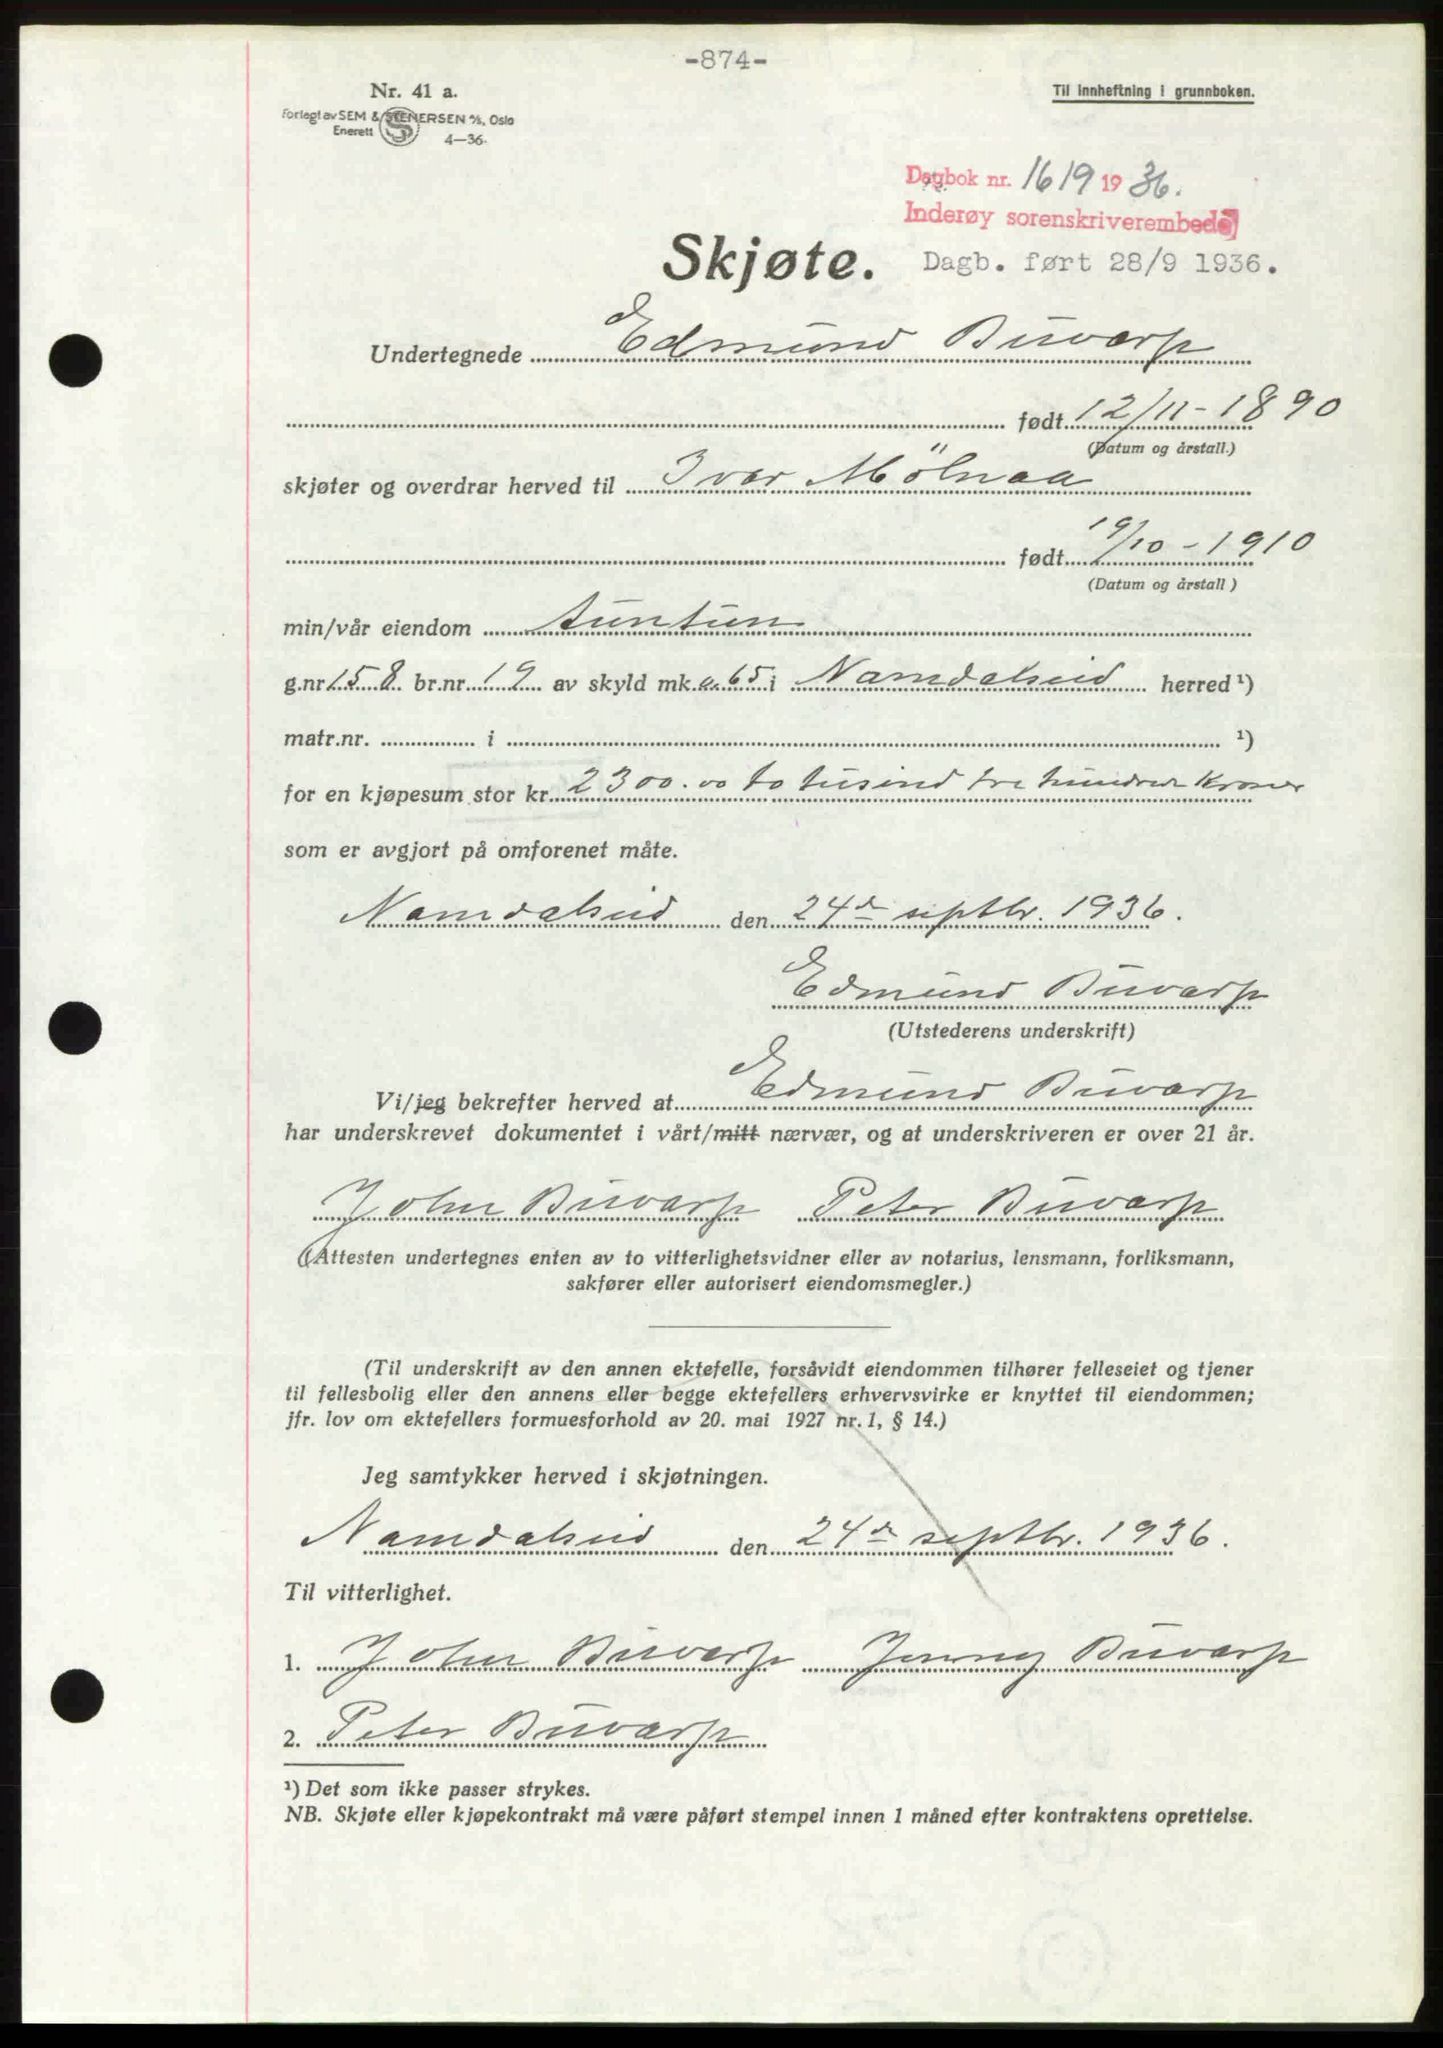 -874-
Nr. 41 a.
Til innheftning i grunnboken.
Forlagt av SEM & STENERSEN A/S, Oslo
Enerett
4—36.
Dagbok nr. 1619 1936.
Inderøy sorenskriverembede
Skjøte.
Dagb. ført 28/9 1936.
Undertegnede Edmund Buvarp
født 12/11-1890
(Datum og årstall.)
skjøter og overdrar herved til Ivar Mölnaa
født 19/10-1910
(Datum og årstall)
min/vår eiendom Auntun
g.nr 158 br.nr. 19 av skyld mk. 0.65 i Namdalseid herred ¹)
matr.nr. i ¹)
for en kjøpesum stor kr. 2300.00 to tusind tre hundrede kroner
som er avgjort på omforenet måte.
Namdalseid den 24de septbr. 1936.
Edmund Buvarp
(Utstederens underskrift)
Vi/jeg bekrefter herved at Edmund Buvarp
har underskrevet dokumentet i vårt/mitt nærvær, og at underskriveren er over 21 år.
John Buvarp Peter Buvarp
(Attesten undertegnes enten av to vitterlighetsvidner eller av notarius, lensmann, forliksmann,
sakfører eller autorisert eiendomsmegler.)
(Til underskrift av den annen ektefelle, forsåvidt eiendommen tilhører felleseiet og tjener
til fellesbolig eller den annens eller begge ektefellers erhvervsvirke er knyttet til eiendommen;
jfr. lov om ektefellers formuesforhold av 20. mai 1927 nr. 1, § 14.)
Jeg samtykker herved i skjøtningen.
Namdalseid den 24de septbr. 1936.
Til vitterlighet.
1. John Buvarp Jenny Buvarp
2. Peter Buvarp
¹) Det som ikke passer strykes.
NB. Skjøte eller kjøpekontrakt må være påført stempel innen 1 måned efter kontraktens oprettelse.